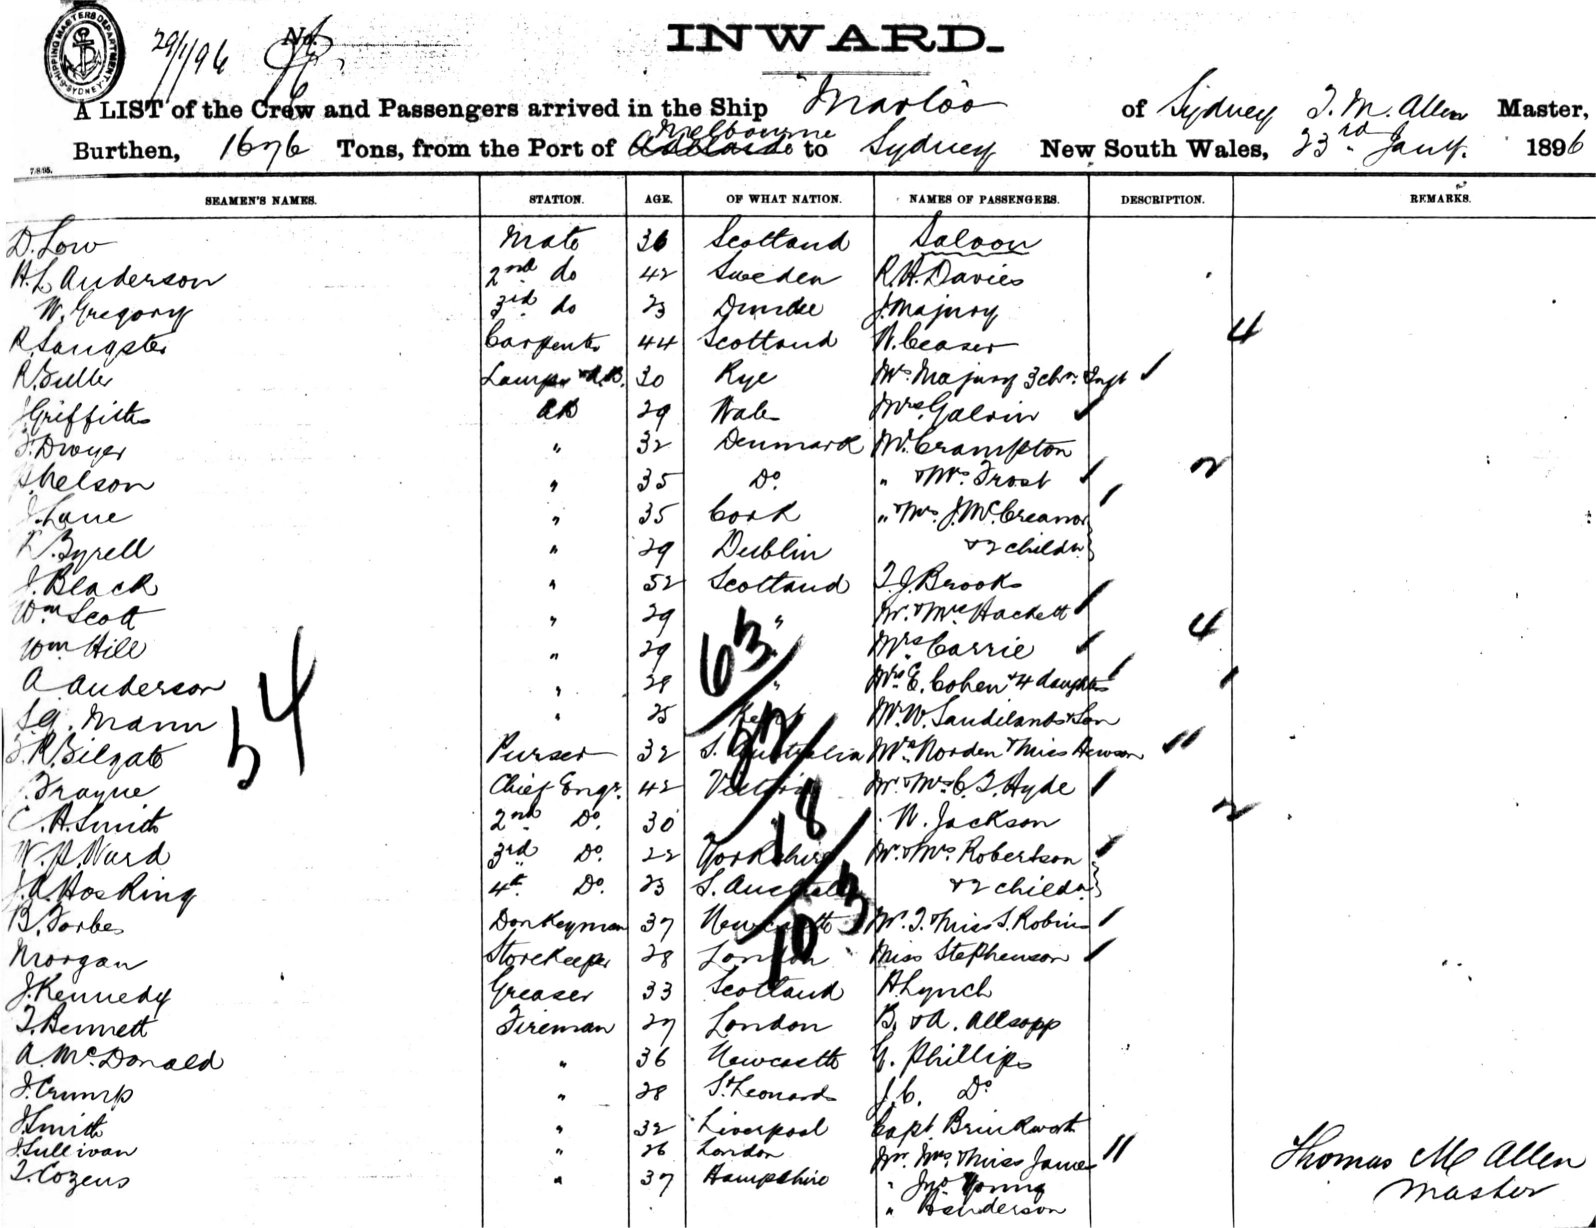 SHIPPING MASTERS DEPARTMENT SYDNEY
29/1/96 No.
INWARD.
A LIST of the Crew and Passengers arrived in the Ship Marloo of Sydney T. M. Allen Master,
Burthen, 1676 Tons, from the Port of Melbourne to Sydney New South Wales, 23rd Jany. 1896
7/8/95.
SEAMEN'S NAMES. STATION. AGE. OF WHAT NATION. NAMES OF PASSENGERS. DESCRIPTION. REMARKS.
D. Low Mate 36 Scotland Saloon
H. L. Anderson 2nd do 42 Sweden R. H. Davies
W. Gregory 3rd do 23 Dundee J. Majury
R. Sangster Carpenter 44 Scotland W. Ceaser 4
R. Fuller Lamps & A.B. 30 Rye Mrs Majury 3 chn & Inft
J. Griffiths AB 29 Wales Mrs Galvin
J. Dwyer " 32 Denmark Mr. Crampton
Nelson " 35 Do. " & Mrs. Frost 2
J. Lane " 35 Cork " & Mrs. J. McCreanor
Tyrell " 29 Dublin & 2 childn
J. Black " 52 Scotland T. J. Brooks
Wm Scott " 29 " Mr. & Mrs Hackett 4
Wm Hill " 29 " Mrs Carrie
A. Anderson " 28 " Mrs E. Cohen & 4 daughters 1
Mann " 25 Kent Mr W. Sandilands & Son
54 63 22 18 103
R. Gilgate Purser 32 S. Australia Mrs Norden & Miss Hewson
Trayne Chief Engr. 42 Victoria Mr. & Mrs C. T. Hyde
C. H. Smith 2nd Do. 30 " W. Jackson 2
W. P. Ward 3rd Do. 22 Yorkshire Mr. & Mrs Robertson
J. A. Hosking 4th Do. 23 S. Australia & 2 childn
B. Forbes Donkeyman 37 Newcastle Mr. T. & Miss S. Robins
Morgan Storekeeper 28 London Miss Stephenson
J. Kennedy Greaser 33 Scotland A Lynch
T. Bennett Fireman 27 London B. & A. Allsopp
A. McDonald " 36 Newcastle G. Phillips
J. Crump " 28 St Leonards J. C. Do
J. Smith " 32 Liverpool Capt Brinkworth
J. Sullivan " 26 London Mr. Mrs. & Miss James
T. Cozens " 37 Hampshire " Jno Young
" Henderson
Thomas M Allen
Master